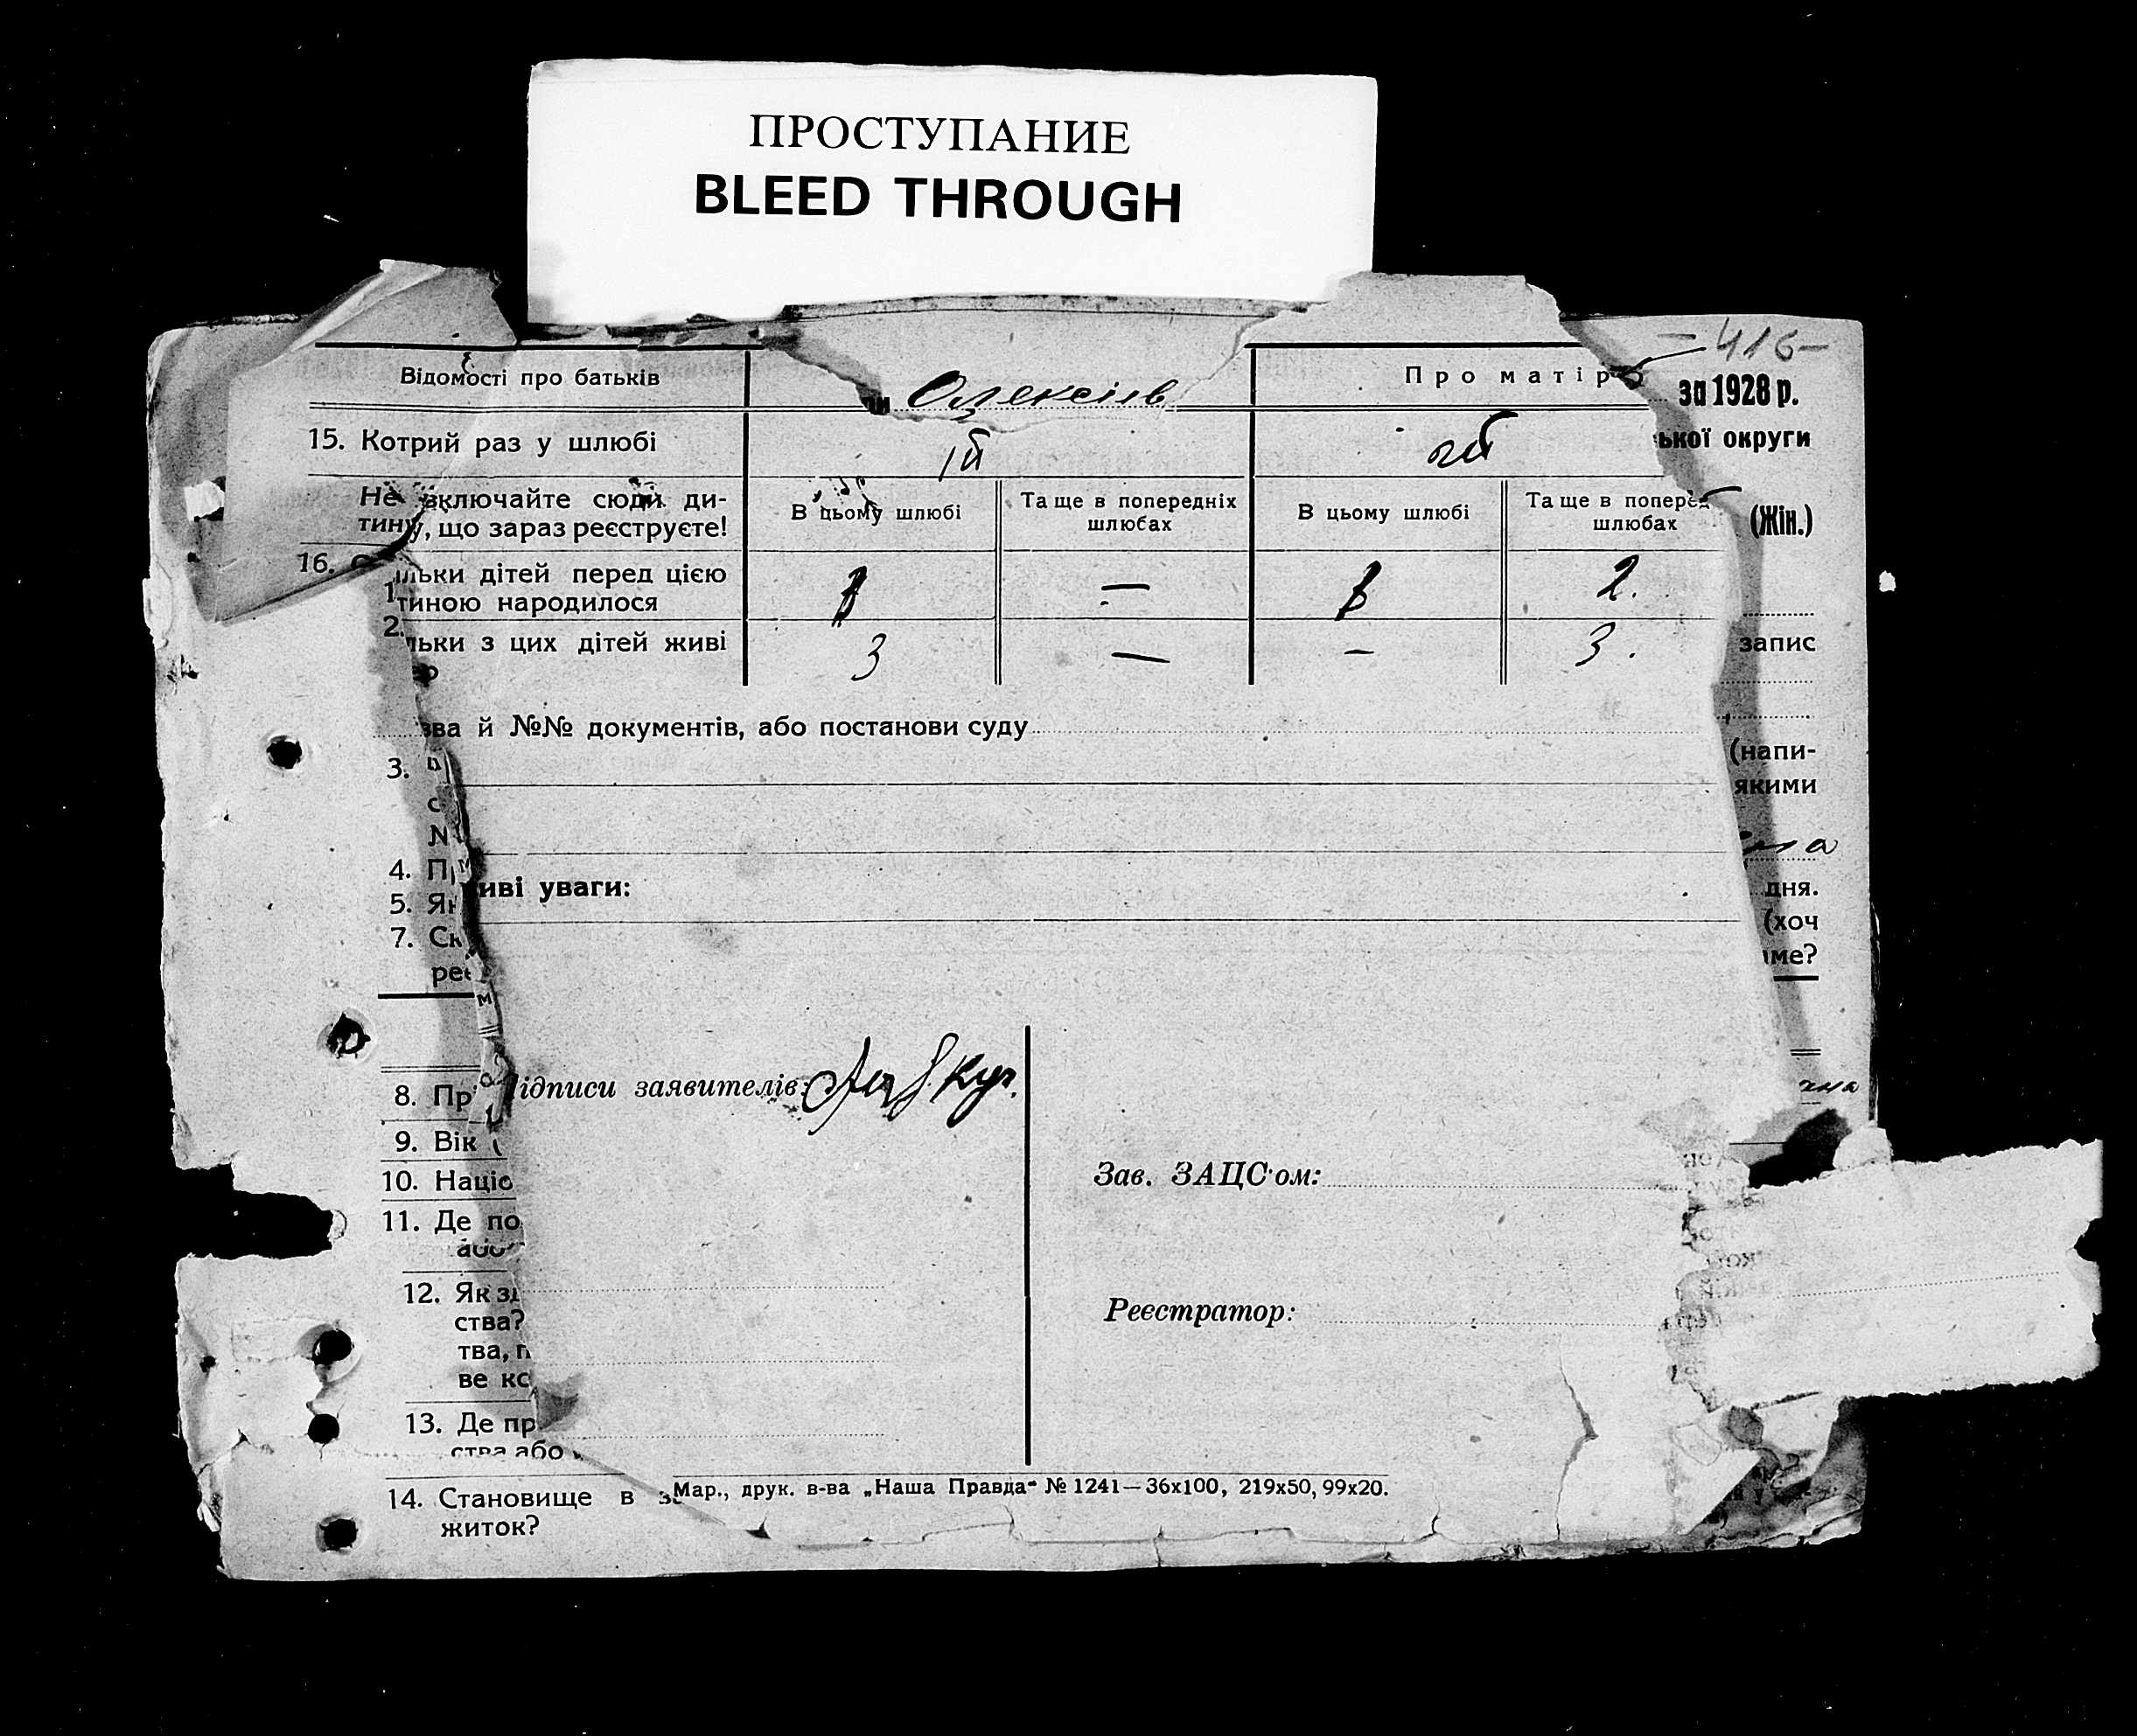 ПРОСТУПАНИЕ
BLEED THROUGH
-416-
Відомості про батьків
Олексіїв
Про матір
за 1928 р.
15. Котрий раз у шлюбі
ької округи
Не включайте сюди ди-
тину, що зараз реєструєте!
В цьому шлюбі
Та ще в попередніх
шлюбах
В цьому шлюбі
Та ще в поперед
шлюбах
(Жін.)
16.
льки дітей перед цією
тиною народилося
—
2.
1
2.
льки з цих дітей живі
3
—
–
3.
запис
зва й №№ документів, або постанови суду
(напи-
якими
3.
4. П
5. Як
7. Ск
реє
иві уваги:
дня.
(хоч
ме?
8. Пр
ідписи заявителів:
9. Вік
10. Націо
11. Де по
або
Зав. ЗАЦС'ом:
12. Як з
ства?
тва, п
ве ко
Реєстратор:
13. Де пр
ства або
14. Становище в з
житок?
Мар., друк. в-ва „Наша Правда“ № 1241—36х100, 219х50, 99х20.